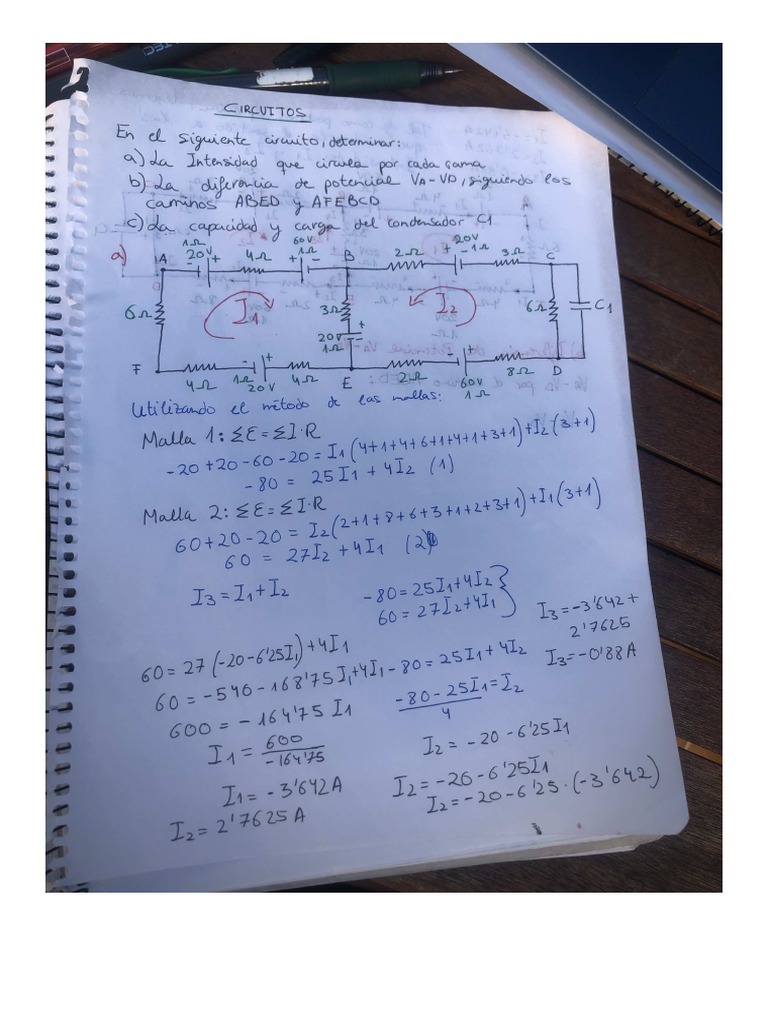 CIRCUITOS
En el siguiente circuito, determinar:
a) La Intensidad que circula por cada rama
b) La diferencia de potencial VA-VD, siguiendo los
caminos ABED y AFEBCD
c) La capacidad y carga del condensador C1
a)
A 1Ω 20V - + 4Ω 60V 1Ω + - B 2Ω 20V + - 1Ω 3Ω C
6Ω I1 3Ω I2 6Ω C1
20V 1Ω + -
F 4Ω - + 1Ω 20V 4Ω E 2Ω - + 60V 1Ω 8Ω D
Utilizando el método de las mallas:
Malla 1: ΣE = ΣI·R
-20+20-60-20 = I1(4+1+4+6+1+4+1+3+1)+I2(3+1)
-80 = 25I1 + 4I2 (1)
Malla 2: ΣE = ΣI·R
60+20-20 = I2(2+1+8+6+3+1+2+3+1)+I1(3+1)
60 = 27I2 + 4I1 (2)
I3 = I1 + I2
-80 = 25I1+4I2
60 = 27I2+4I1
I3 = -3'642 +
2'7625
I3 = -0'88 A
60 = 27(-20-6'25I1)+4I1
60 = -540-168'75I1+4I1
600 = -164'75 I1
I1 = 600/-164'75
I1 = -3'642A
I2 = 2'7625 A
-80 = 25I1 + 4I2
-80-25I1/4 = I2
I2 = -20-6'25I1
I2 = -20-6'25I1
I2 = -20-6'25·(-3'642)